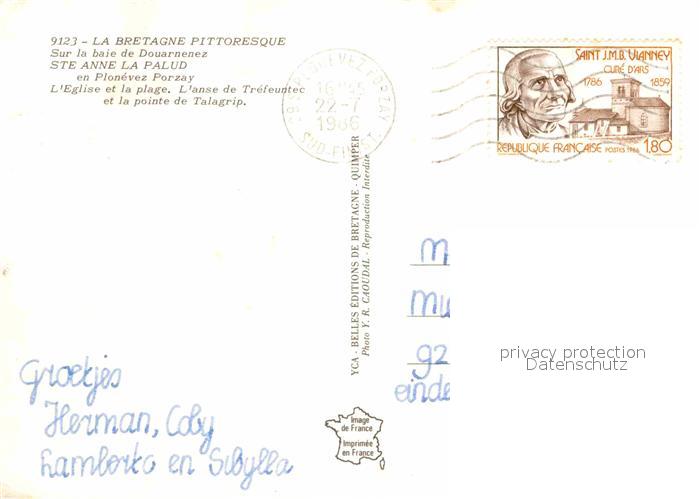 9123 - LA BRETAGNE PITTORESQUE
Sur la baie de Douarnenez
STE ANNE LA PALUD
en Plonévez Porzay
L'Eglise et la plage. L'anse de Tréfeuntec
et la pointe de Talagrip.
PLONEVEZ PORZAY
22-7
1986
SUD-FINIST.
SAINT J.M.B. VIANNEY
CURÉ D'ARS
1786 1859
RÉPUBLIQUE FRANÇAISE POSTES 1986 1,80
YCA - BELLES ÉDITIONS DE BRETAGNE - QUIMPER
Photo Y. R. CAOUDAL - Reproduction Interdite
M
Mu
92
einde
privacy protection
Datenschutz
Groetjes
Herman, Coby
Lamberto en Sibylla
Image
de France
Imprimée
en France